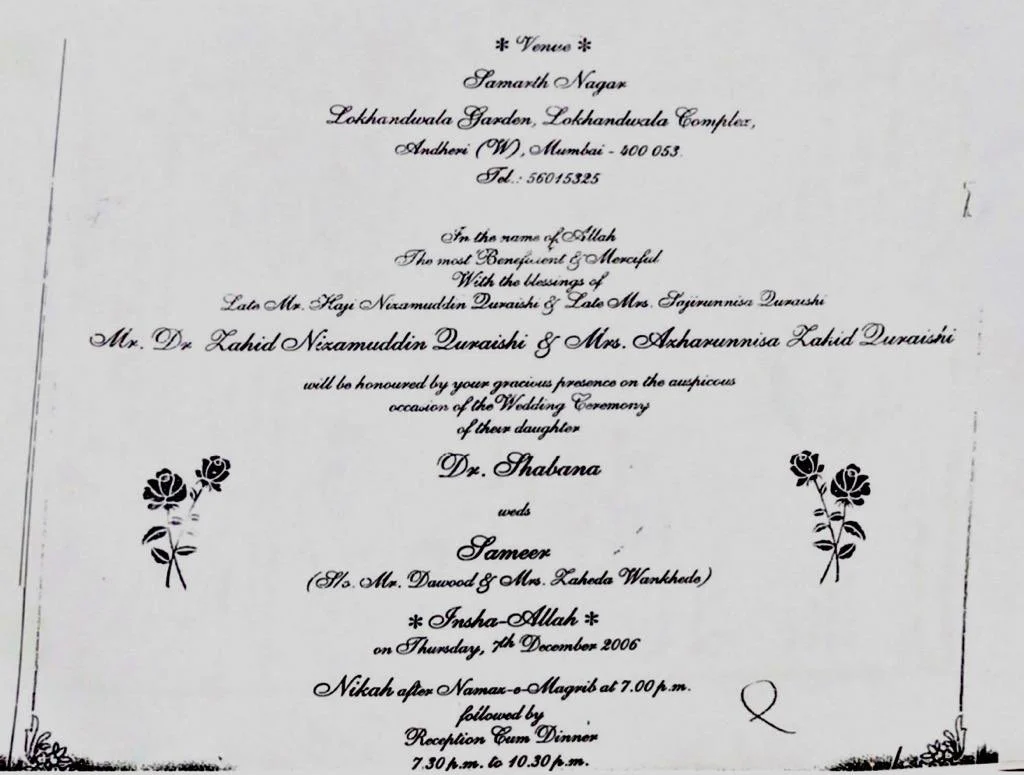 * Venue *
Samarth Nagar
Lokhandwala Garden, Lokhandwala Complex,
Andheri (W), Mumbai - 400 053.
Tel.: 56015325
In the name of Allah
The most Beneficient & Merciful
With the blessings of
Late Mr. Haji Nizamuddin Quraishi & Late Mrs. Sajirunnisa Quraishi
Mr. Dr Zahid Nizamuddin Quraishi & Mrs. Azharunnisa Zahid Quraishi
will be honoured by your gracious presence on the auspicous
occasion of the Wedding Ceremony
of their daughter
Dr. Shabana
weds
Sameer
(S/o. Mr. Dawood & Mrs. Zaheda Wankhede)
* Insha-Allah *
on Thursday, 7th December 2006
Nikah after Namaz-e-Magrib at 7.00 p.m.
followed by
Reception Cum Dinner
7.30 p.m. to 10.30 p.m.